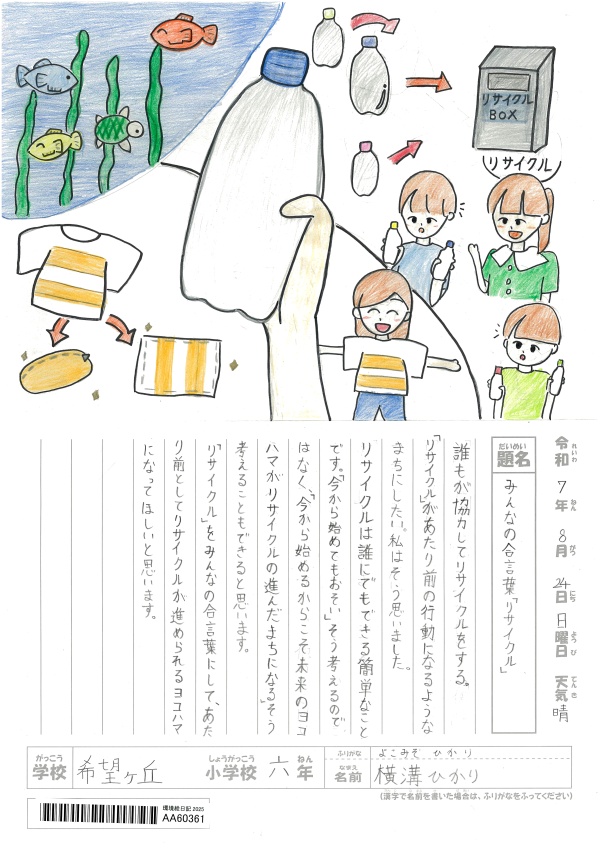 リサイクル
BOX
リサイクル
令和7年8月24日日曜日 天気 晴
れいわ ねん がつ にち ようび てんき
だいめい
題名 みんなの合言葉「リサイクル」
誰もが協力してリサイクルをする。
「リサイクル」があたり前の行動になるような
まちにしたい。私はそう思いました。
リサイクルは誰にでもできる簡単なこと
です。「今から始めてもおそい」そう考えるので
はなく、「今から始めるからこそ未来のヨコ
ハマがリサイクルの進んだまちになる」そう
考えることもできると思います。
「リサイクル」をみんなの合言葉にして、あた
り前としてリサイクルが進められるヨコハマ
になってほしいと思います。
がっこう
学校 希望ヶ丘
しょうがっこう ねん
小学校 六年
ふりがな よこみぞ ひかり
なまえ
名前 横溝ひかり
(漢字で名前を書いた場合は、ふりがなをふってください)
環境絵日記 2025
AA60361